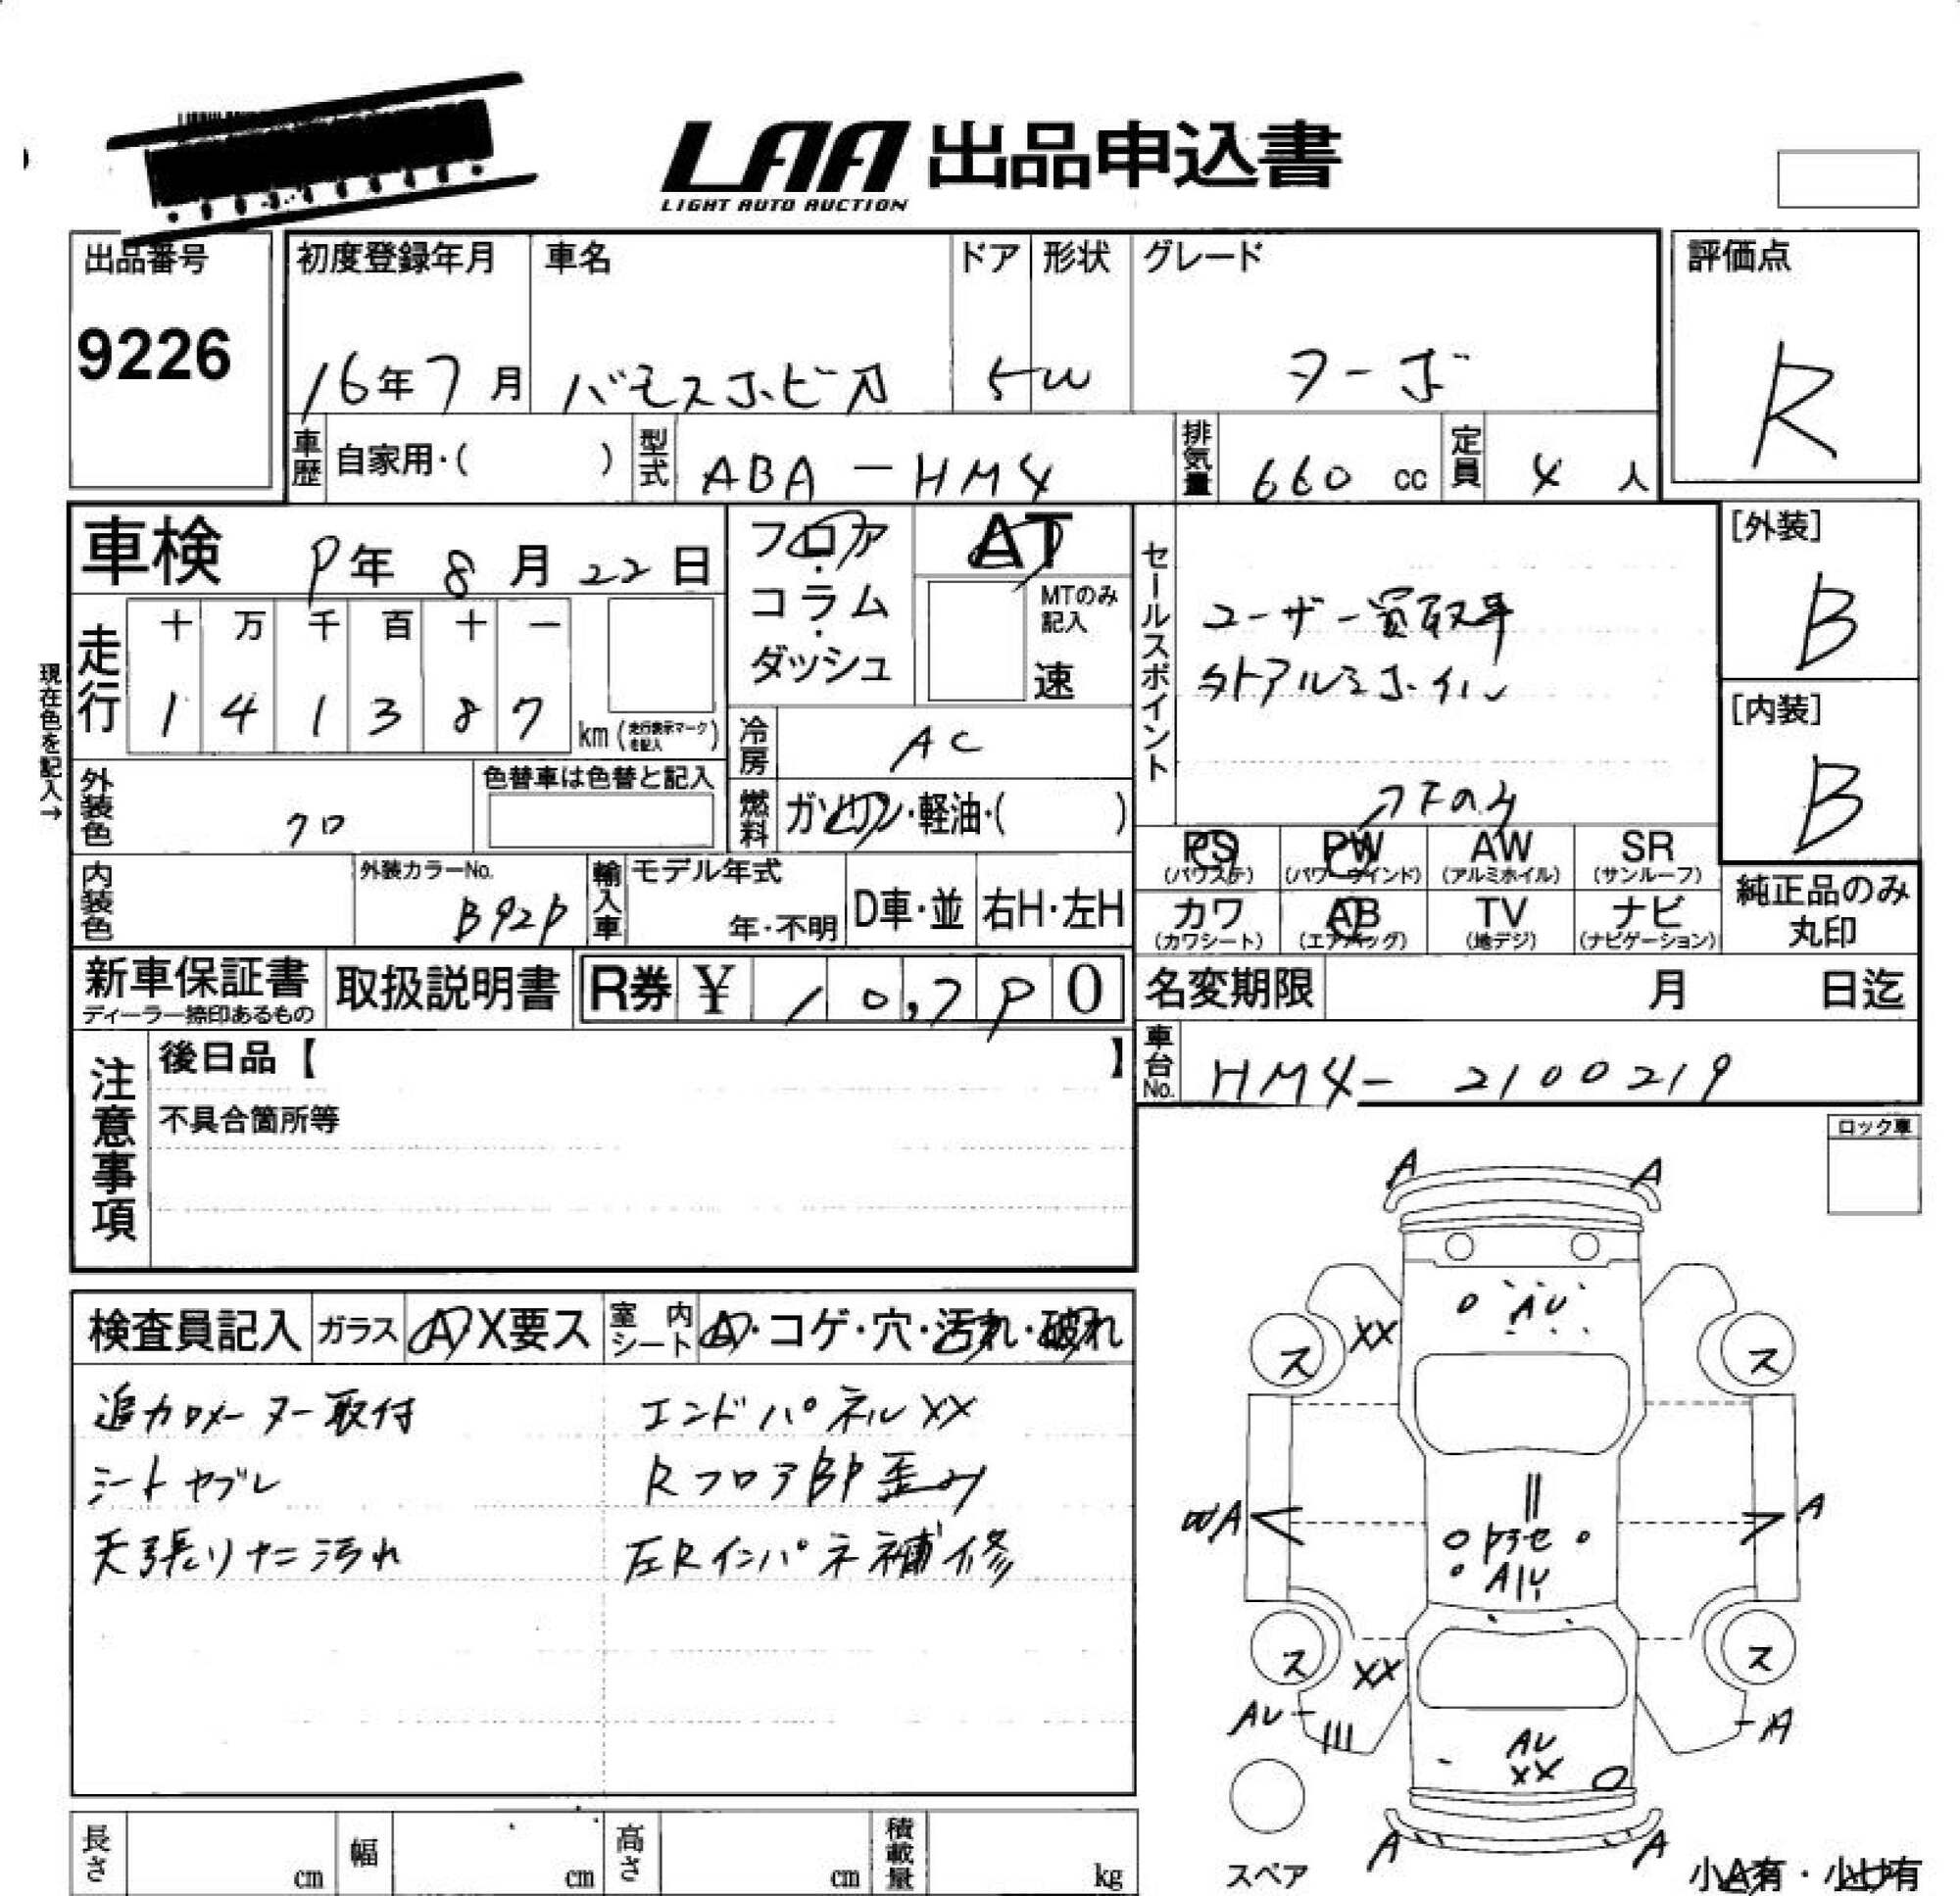 LAA 出品申込書
LIGHT AUTO AUCTION
出品番号
9226
初度登録年月
16年7月
車名
バモスホビオ
ドア
5
形状
W
グレード
ターボ
評価点
R
車歴
自家用・( )
型式
ABA-HM4
排気量
660 cc
定員
4 人
車検 9年 8月 22日
フロア・コラム・ダッシュ
AT
MTのみ記入
速
現在色を記入→
走行
十 万 千 百 十 一
1 4 1 3 8 7
km (走行表示マークを記入)
冷房
AC
外装色
クロ
色替車は色替と記入
燃料
ガソリン・軽油・( )
内装色
外装カラーNo.
B92P
輸入車
モデル年式
年・不明
D車・並
右H・左H
セールスポイント
ユーザー買取車
外アルミホイル
[外装]
B
[内装]
B
PS (パワステ)
PW (パワーウインド)
AW (アルミホイル)
SR (サンルーフ)
カワ (カワシート)
AB (エアバッグ)
TV (地デジ)
ナビ (ナビゲーション)
純正品のみ
丸印
新車保証書
ディーラー捺印あるもの
取扱説明書
R券 ¥ 10,790
名変期限 月 日迄
車台No.
HM4-2100219
注意事項
後日品【 】
不具合箇所等
ロック車
検査員記入
ガラス
A X要ス
室内シート
A・コゲ・穴・汚れ・破れ
追加メーター取付
シートヤブレ
天張りナニ汚れ
エンドパネルXX
RフロアBP歪み
左Rインパネ補修
A
A
AU
XX
ス
ス
A
A
AU
XX
ス
ス
AU
A
AU
XX
A
A
スペア
小A有・小U有
長さ cm
幅 cm
高さ cm
積載量 kg